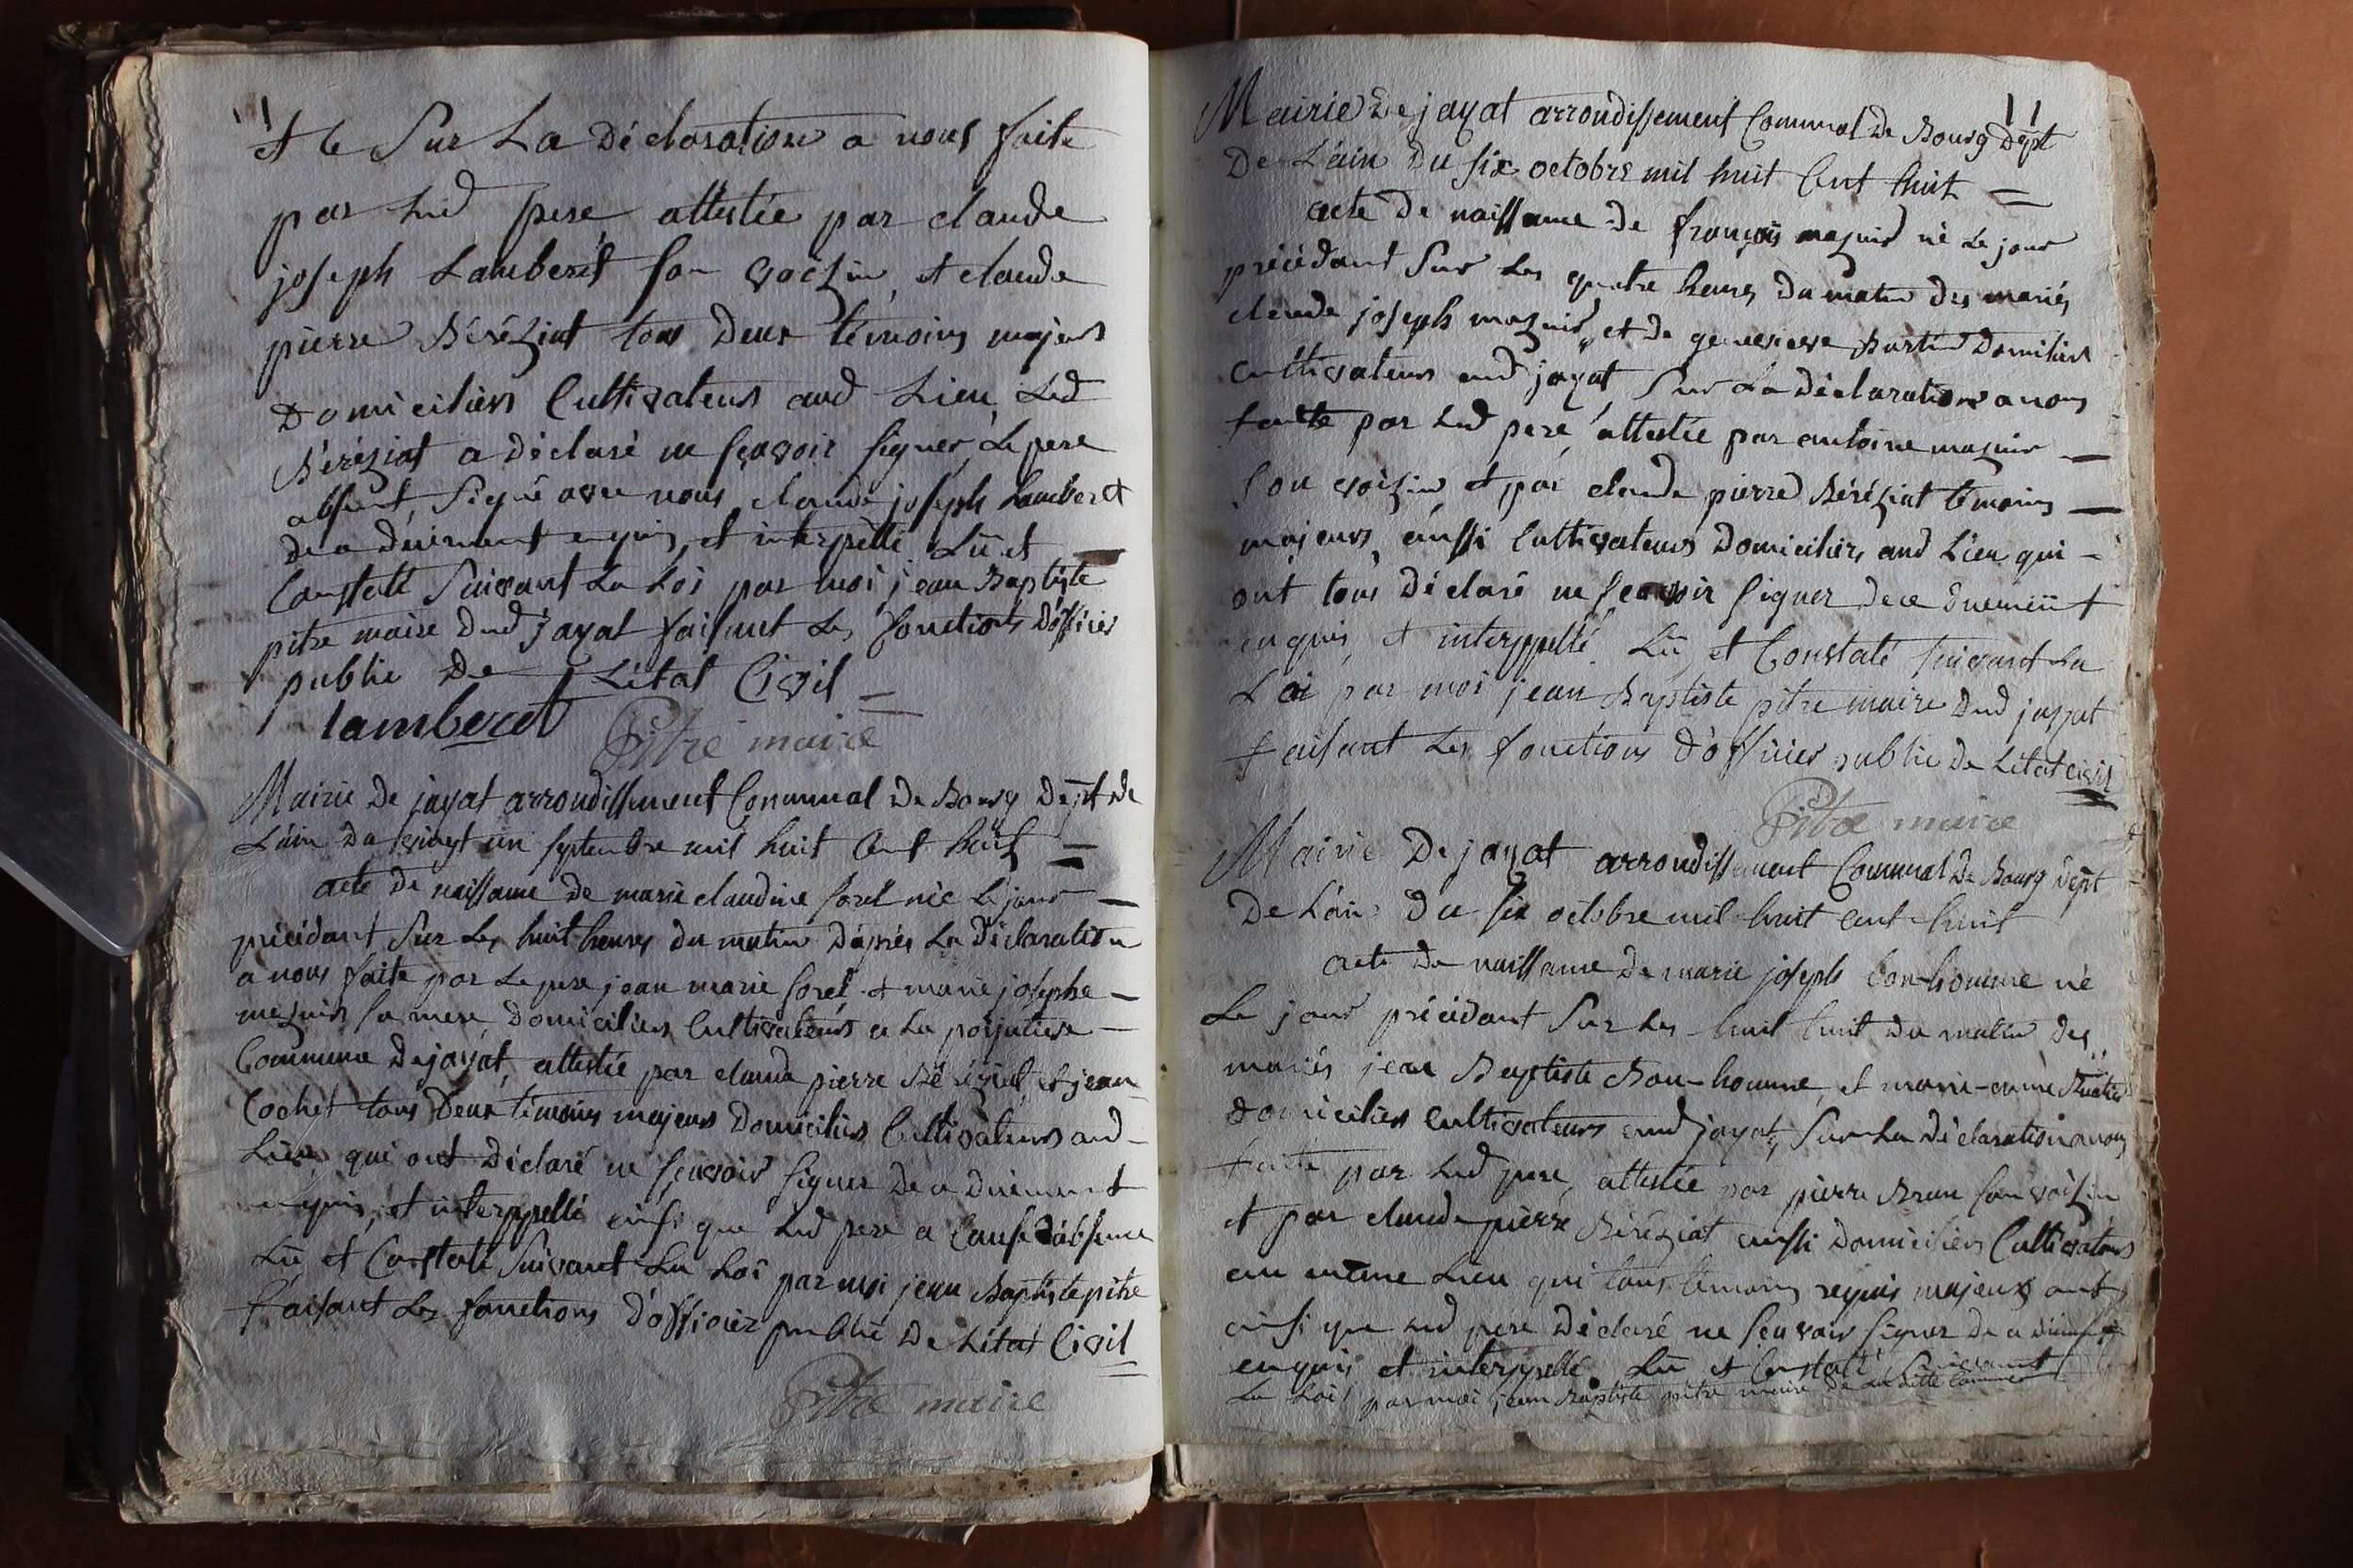 et le Sur La Déclaration a nous faite
par Led pere attestée par claude
joseph Lamberet son voisin, et claude
pierre Béréziat tous Deux témoins majeurs
Domiciliés Cultivateurs aud Lieu, Led
Béréziat a déclaré ne sçavoir signer, Le pere
absent, signé avec nous claude joseph Lamberet
De ce duement enquis, et interpellé Lû et
Constaté Suivant La Loi par moi jean Baptiste
pitre maire Dud Jayat faisant Les fonctions D'officier
public De L'état Civil
lamberet Pitre maire
Mairie De jayat arrondissement Communal De Bourg Dept De
L'ain Du vingt un septembre mil huit Cent huit
acte De naissance De marie claudine foret née Le jour
précédant Sur Les huit heures du matin D'après La Déclaration
a nous faite par Le pere jean marie foret et marie josephe
mazuir sa mere, Domiciliés Cultivateurs a La
Commune De jayat, attestée par claude pierre Béréziat, et jean
Cochet tous Deux témoins majeurs Domiciliés Cultivateurs aud
Lieu, qui ont Déclaré ne sçavoir signer De ce Duement
enquis, et interppellé ainsi que Led pere a Cause D'absence
Lû et Constaté Suivant La Loi par moi jean Baptiste pitre
faisant Les fonctions D'officier public De L'état Civil
Pitre maire
11
Mairie De jayat arrondissement Communal De Bourg Dept
De L'ain Du six octobre mil huit Cent huit
acte De naissance De françois mazuir né Le jour
précédant Sur Les quatre heures Du matin Des mariés
claude joseph mazuir, et De genevieve Domiciliés
Cultivateurs aud jayat, Sur La Déclaration a nous
faitte par Led pere, attestée par antoine mazuir
Son voisin et par claude pierre Béréziat témoins
majeurs, aussi Cultivateurs Domiciliés aud Lieu qui
ont tous Déclaré ne sçavoir signer De ce Duement
enquis, et interppellé. Lû, et Constaté suivant La
Loi par moi jean Baptiste pitre maire Dud jayat
faisant Les fonctions D'officier public De L'état civil
Pitre maire
Mairie De jayat arrondissement Communal De Bourg Dept
De L'ain Du six octobre mil huit cent huit
acte De naissance De marie joseph bon-homme né
Le jour précédant Sur Les huit huit Du matin Des
mariés jean Baptiste Bon-homme, et marie-
Domiciliés Cultivateurs aud jayat, Sur La Déclaration a nous
faite par Led pere, attestée par pierre Brun son voisin
et par claude pierre Béréziat aussi Domiciliés Cultivateurs
au même Lieu qui tous témoins requis majeurs ont
ainsi que Led pere Déclaré ne sçavoir signer De ce Duement
enquis et interppellé. Lû et Constaté Suivant
La Loi par moi jean Baptiste pitre maire De La dite Commune